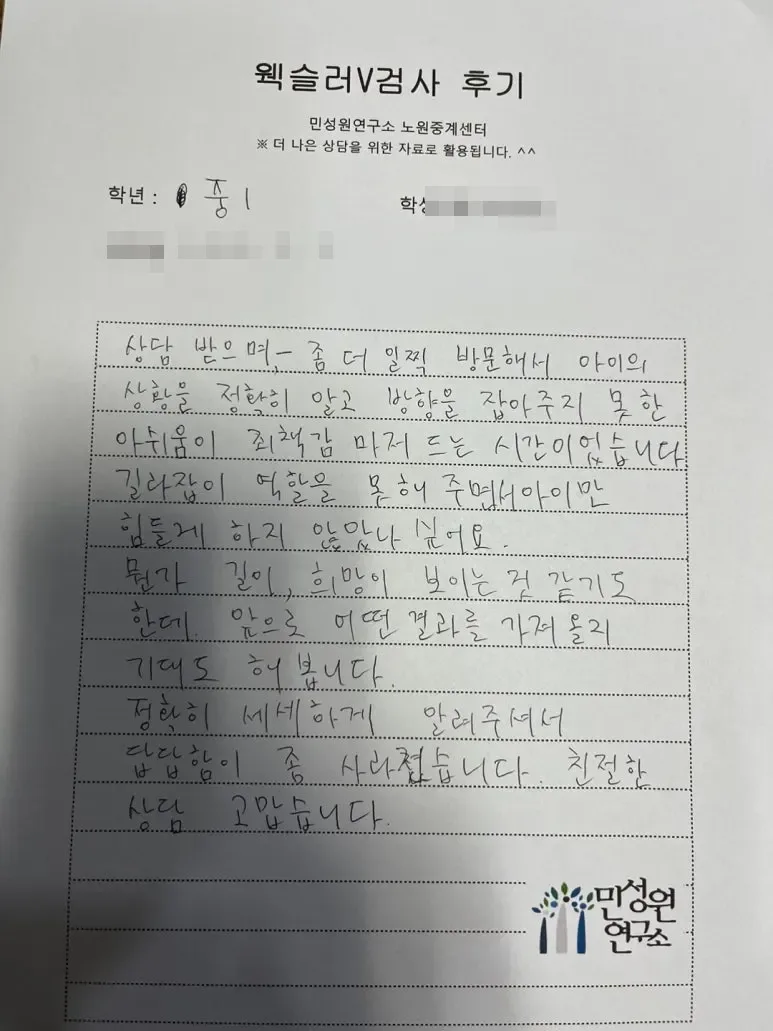 웩슬러V검사 후기
민성원연구소 노원중계센터
※ 더 나은 상담을 위한 자료로 활용됩니다. ^^
학년 : 중1
상담 받으며, 좀 더 일찍 방문해서 아이의
상황을 정확히 알고 방향을 잡아주지 못한
아쉬움이 죄책감 마저 드는 시간이었습니다
길라잡이 역할을 못해 주면서 아이만
힘들게 하지 않았나 싶어요.
뭔가 길이, 희망이 보이는 것 같기도
한데. 앞으로 어떤 결과를 가져올지
기대도 해 봅니다.
정확히 세세하게 알려주셔서
답답함이 좀 사라졌습니다. 친절한
상담 고맙습니다.
민성원
연구소